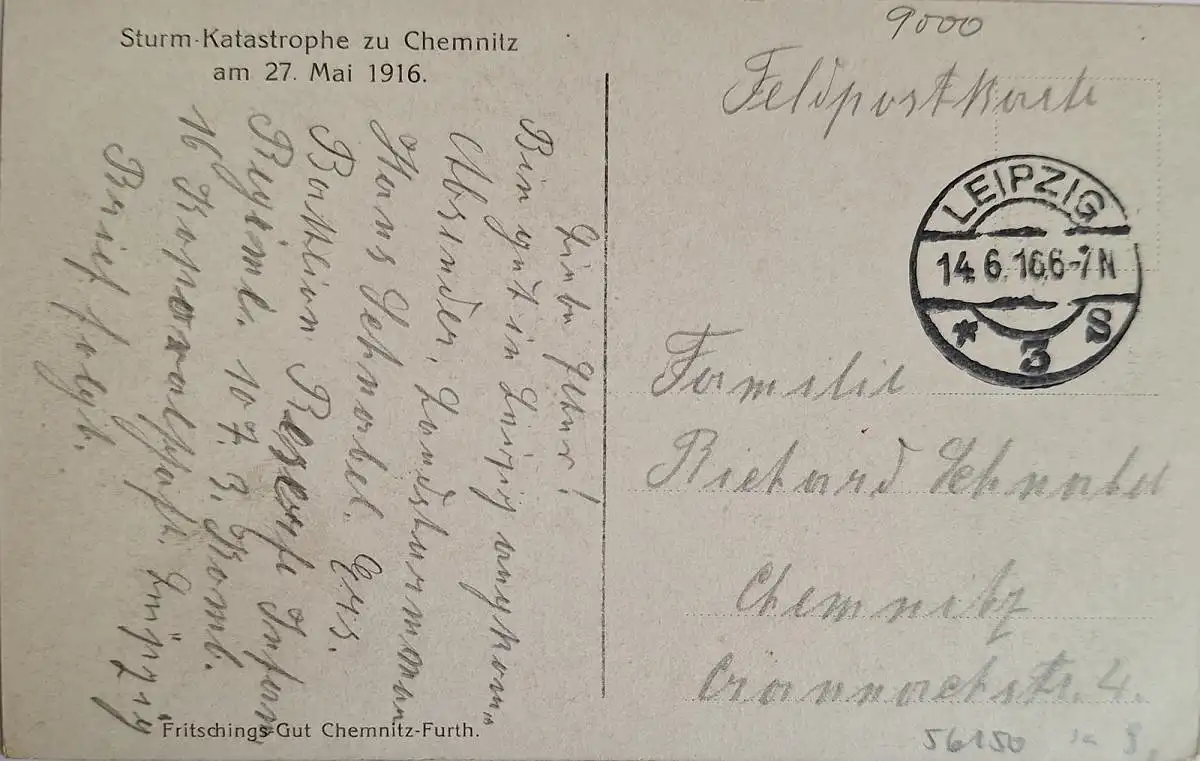 Sturm-Katastrophe zu Chemnitz
am 27. Mai 1916.
Liebe Eltern!
Bin gut in Leipzig angekom=
Absender, Landsturmmann
Hans Schnabel. Ers.
Battlion Reserfe Infam
Regiml. 107. 3. Komb.
16 Korporalschaft. Leipzig
Brief folgt.
Fritschings-Gut Chemnitz-Furth.
9000
Feldpostkarte
LEIPZIG
14.6.16.6-7N
* 3 S
Familie
Richard Schnabel
Chemnitz
Crannachstr. 4.
56150